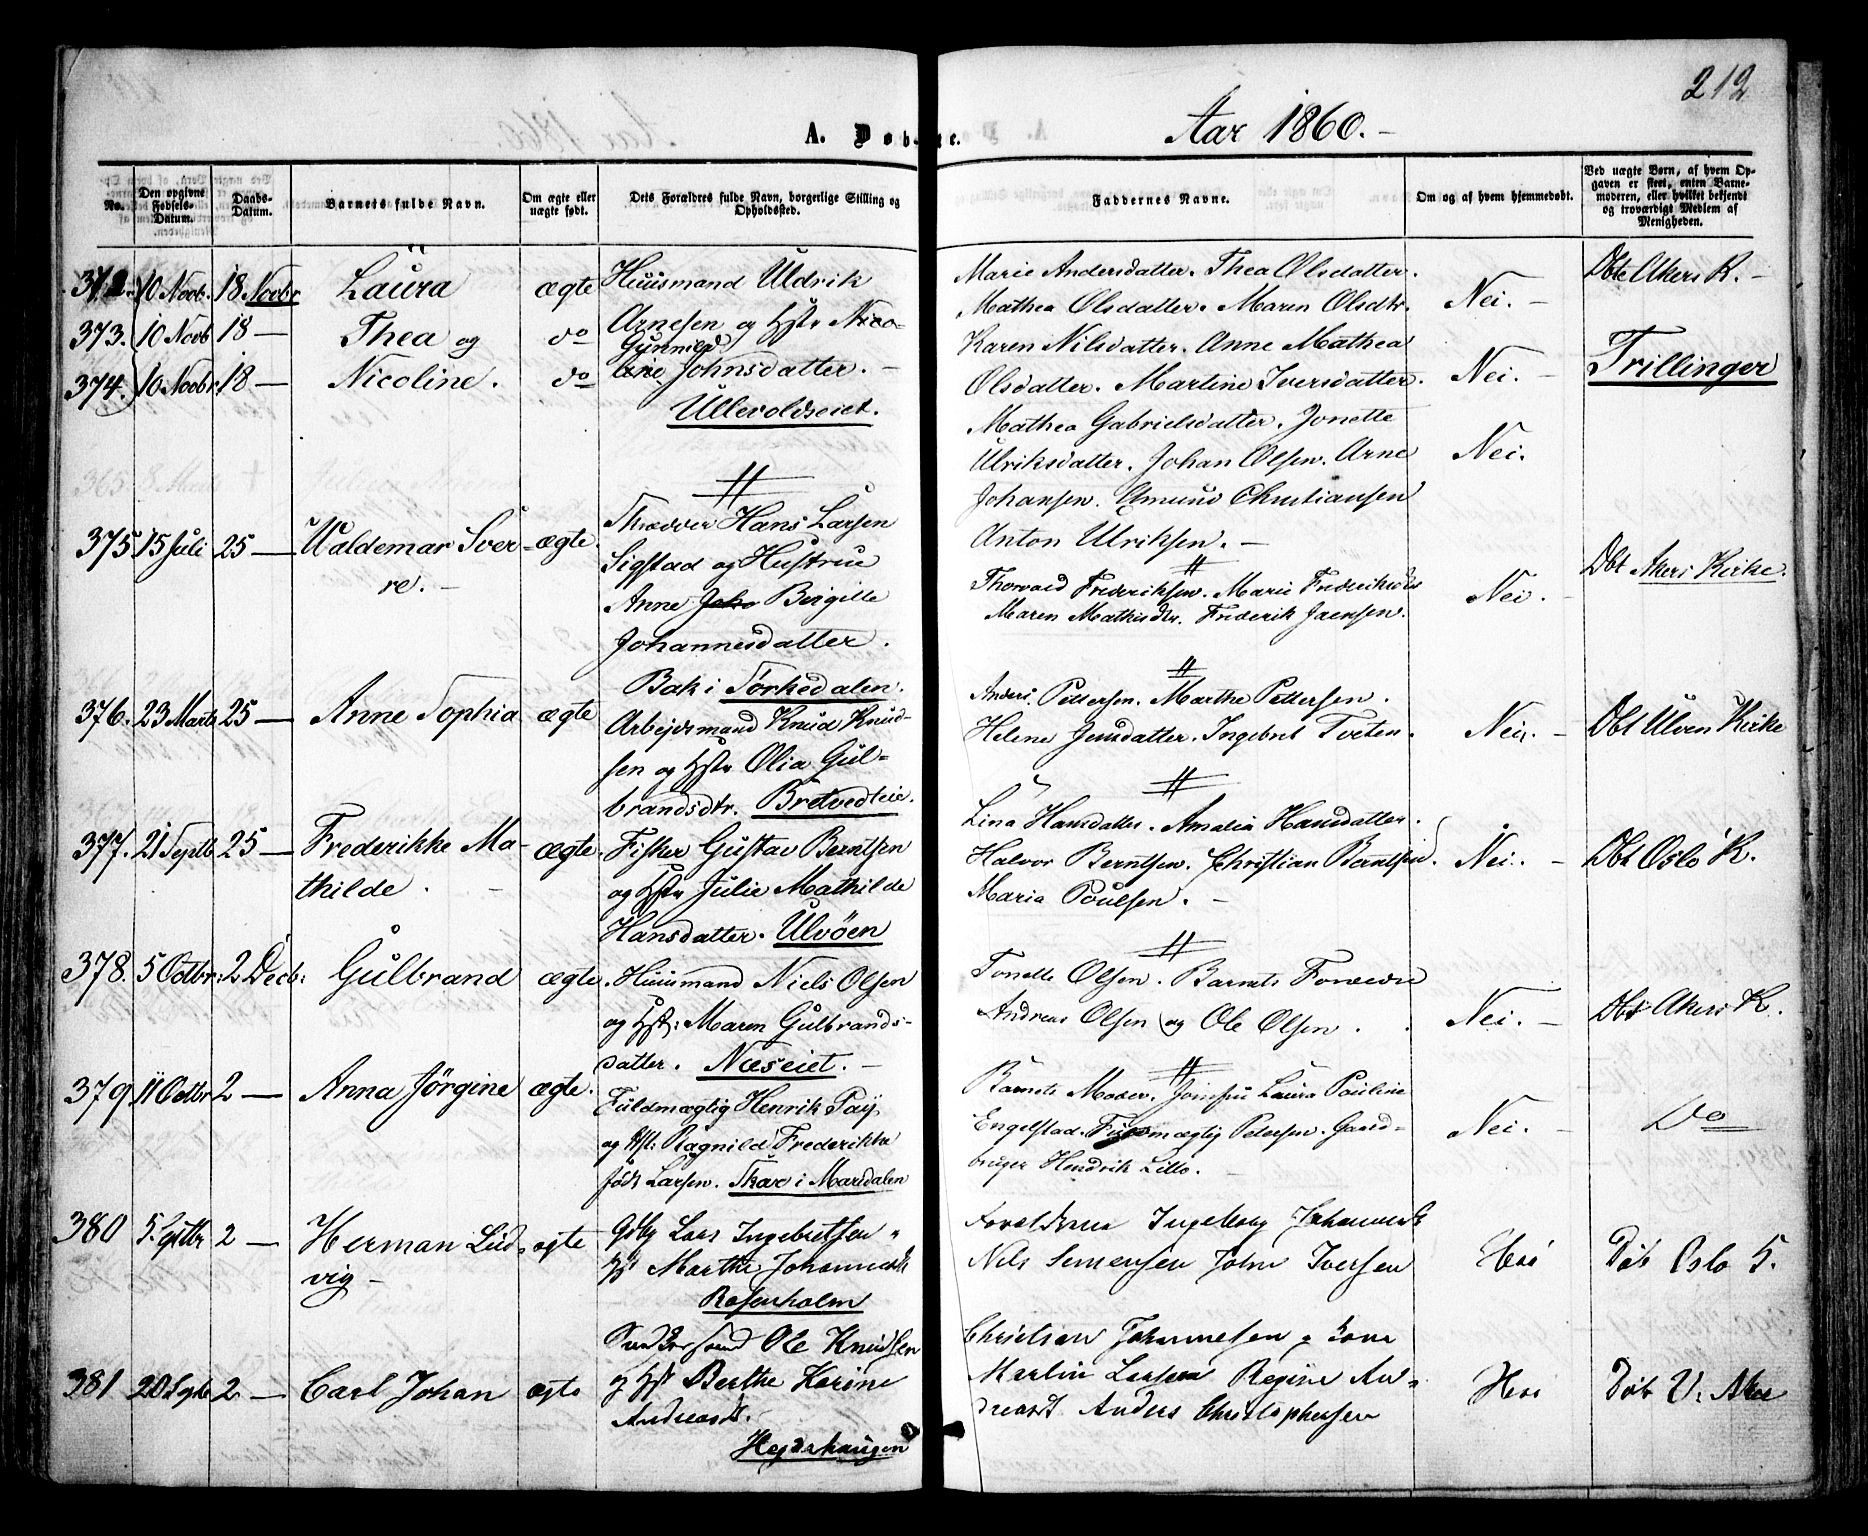 212
A. Døbte.
Aar 1860.
No.
Den opgivne Fødsels-Datum.
Daabs-Datum.
Barnets fulde Navn.
Om ægte eller uægte født.
Dets Forældres fulde Navn, borgerlige Stilling og Opholdssted.
Faddernes Navne.
Om og af hvem hjemmedøbt.
Ved uægte Børn, af hvem Opgaven er skeet, enten Barnemoderen, eller hvilket bekjendt og troværdigt Medlem af Menigheden.
372. 10 Novb. 18 Novbr Laura ægte Huusmand Uldrik
373. 10 Novb 18 — Thea og do Arnesen og Hstr Nico-
Gunnild
374. 10 Novbr 18 — Nicoline. do line Johnsdatter. —
Ullevoldseiet.
Marie Andersdatter. Thea Olsdatter.
Mathea Olsdatter. Maren Olsdtr. Nei. — Dbt Akers K. —
Karen Nilsdatter. Anne Mathea
Olsdatter. Martine Iversdatter. Nei. — Trillinger
Mathea Gabrielsdatter. Jonette
Ulriksdatter. Johan Olsen. Arne Nei.
Johansen. Amund Christiansen
Anton Ulriksen. —
375. 15 Juli 25 — Waldemar Sver- ægte. Skrædder Hans Larsen
re. — Sigstad og Hustrue
Anne Joha Birgitte
Johannesdatter.
Bak i Sørkedalen.
Thorvald Frederiksen. Marie Frederiksdtr
Maren Mathisdtr. Frederik Jaensen. Nei. — Dbt Akers Kirke.
376. 23 Marts 25 — Anne Sophia ægte Arbejdsmand Knud Knud-
sen og Hstr Olia Gul-
brandsdtr. Bretvedteie.
Anders Pettersen. Marthe Pettersen.
Helene Jensdatter. Ingebret Tveten. Nei. — Dbt Ulven Kirke
377. 21 Septb 25 — Frederikke Ma- ægte. Fisker Gustav Berntsen
thilde. — og Hstr Julie Mathilde
Hansdatter. Ulvöen
Lina Hansdatter. Amalia Hansdatter.
Halvor Berntsen. Christian Berntsen. Nei. — Dbt Oslo K.
Maria Poulsen. —
378. 5 Octbr: 2 Decb: Gulbrand ægte. Huusmand Niels Olsen
og Hst: Maren Gulbrands-
datter. Næseiet. —
Tonette Olsen. Barnets Forældre
Andreas Olsen og Ole Olsen. Nei. — Dbt Akers K.
379 11 Octbr 2 — Anna Jörgine ægte. Fuldmægtig Henrik Pay
og Hst: Ragnild Frederikke
födt Larsen. Skar i Maridalen
Barnets Moder. Jomfru Laura Pauline
Engelstad. Fuldmægtig Petersen. Gaard-
bruger Hendrik Lillo. Nei. — Do
380 5. Septbr 2 — Herman Lud- ægte Gdbg Lars Ingebretsen
vig — Hst Marthe Johannesdtr
Rosenholm
Forældrene Ingeborg Johannesdtr
Nils Simensen John Iversen Nei Döb Oslo K.
381 20 Septbr 2 — Carl Johan ægte Ole Knudsen
og Hst Berthe Karine
Andreasdt.
Hegdehaugen
Christian Johannesen
Martin Larsen Regine An-
dreasdt Anders Christophersen Nei Döb V. Aker